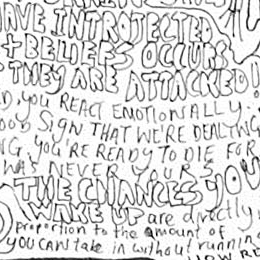 AVE INTROJECTED
+ BELIEFS OCCURS
THEY ARE ATTACKED!
D, YOU REACT EMOTIONALLY.
OOD SIGN THAT WE'RE DEALING
NG. YOU'RE READY TO DIE FOR
WAS NEVER YOURS
THE CHANCES YOU
WAKE UP are directly
proportion to the amount of
YOU CAN take in without running